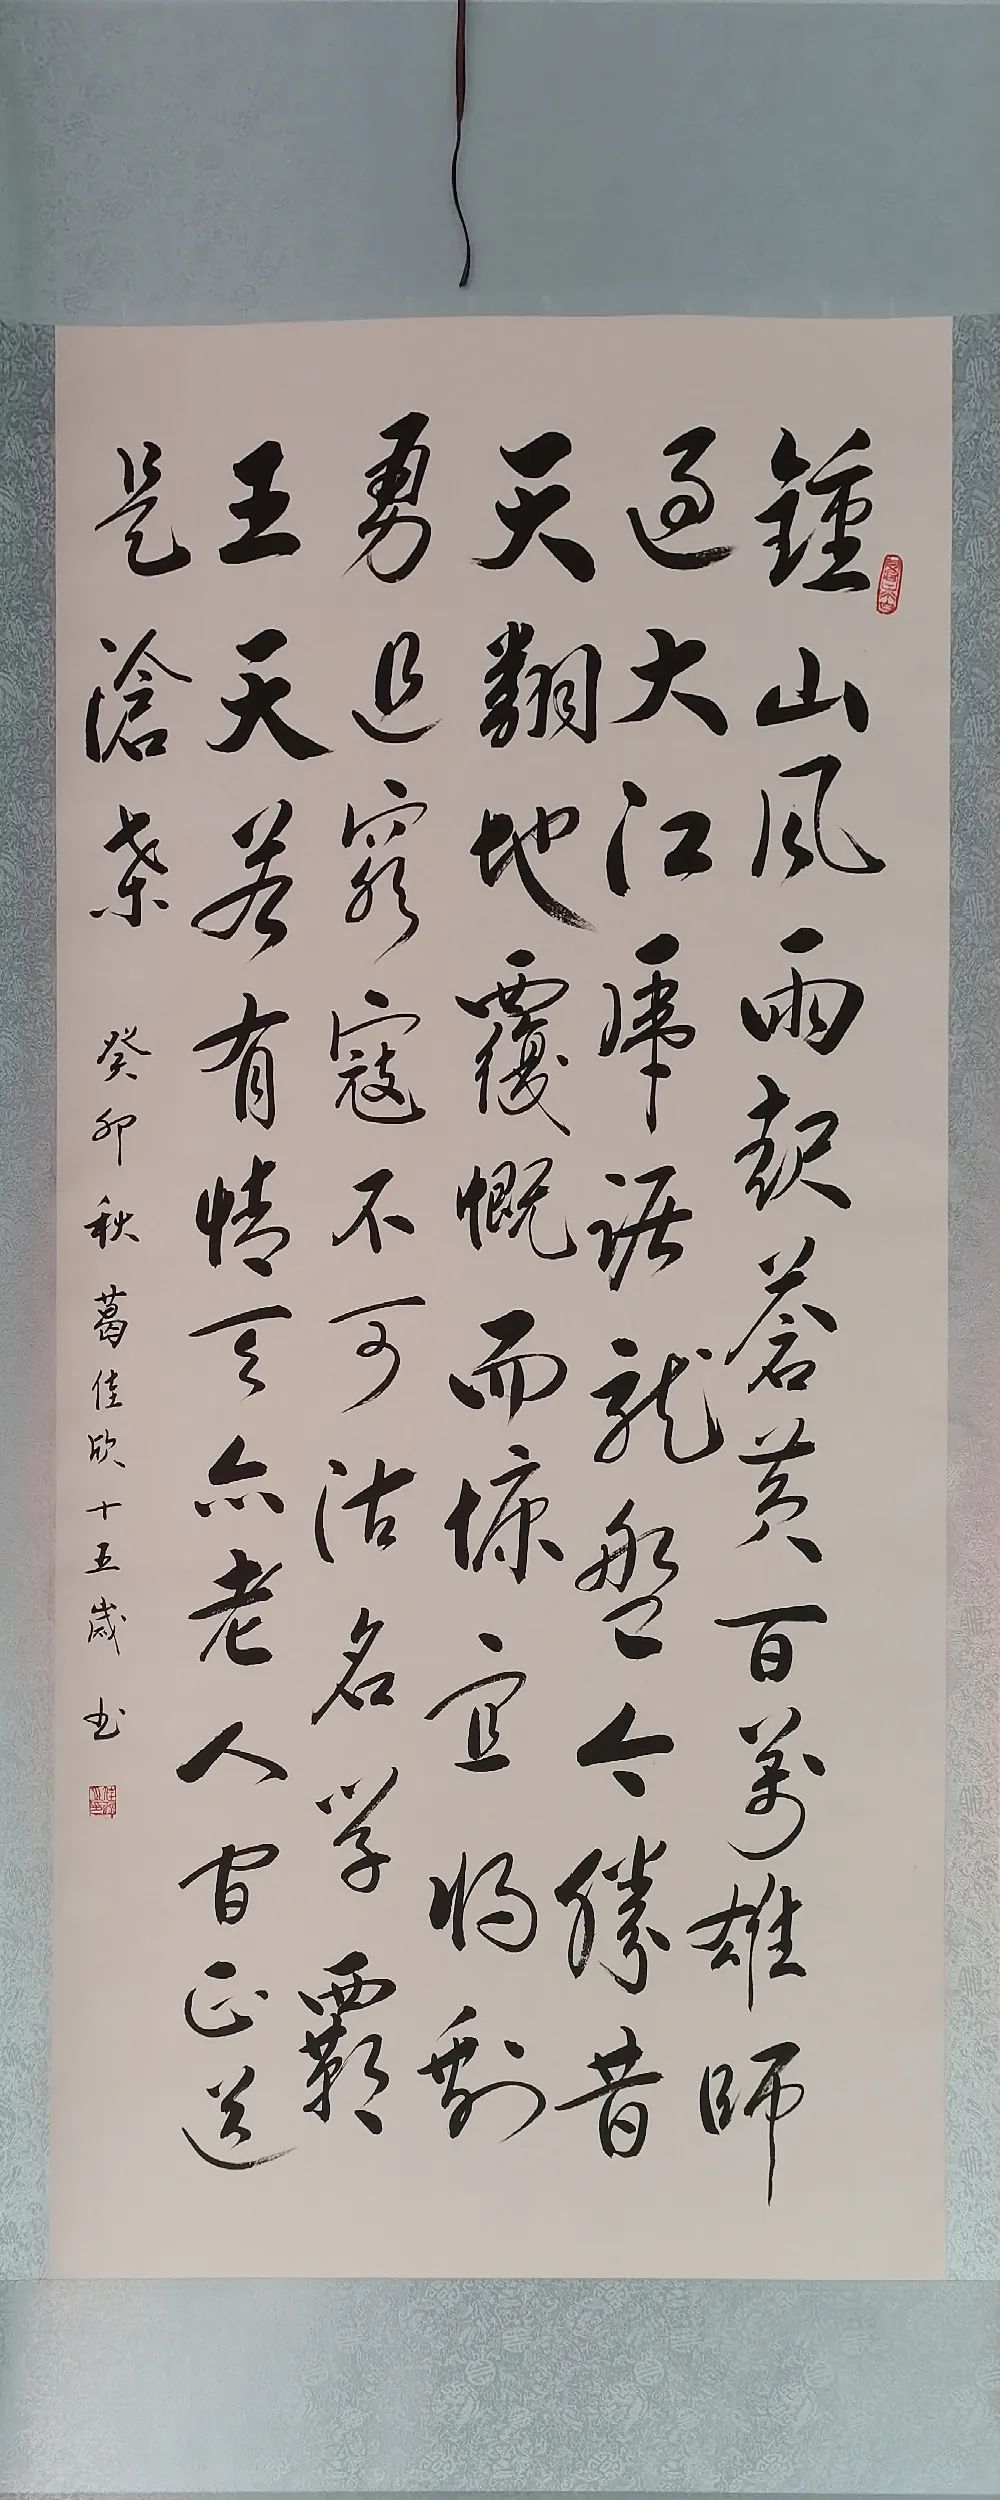 鍾山風雨起蒼黃百萬雄師
過大江虎踞龍盤今勝昔
天翻地覆慨而慷宜將剩
勇追窮寇不可沽名學霸
王天若有情天亦老人間正道
是滄桑
癸卯秋葛佳欣十五歲书